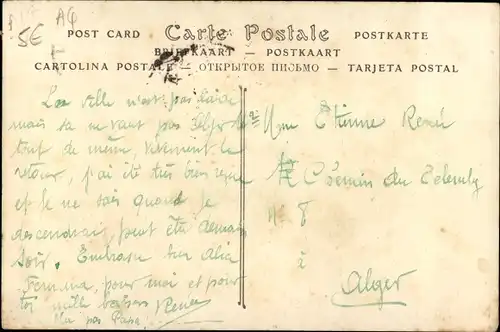 5€ A4
POST CARD Carte Postale POSTKARTE
BRIEFKAART — POSTKAART
CARTOLINA POSTALE — ОТКРЫТОЕ ПИСЬМО — TARJETA POSTAL
La ville n'est pas laide
mais sa ne vaut pas Alger
tout de même, vivement le
retour, j'ai été très bien reçue
et je ne sais quand je
descendrai, peut être demain
soir. Embrasse bien
pour moi et pour
toi mille baisers Renée
pas Papa!
Mme Etienne René
Chemin du Telemly
N° 8
à
Alger